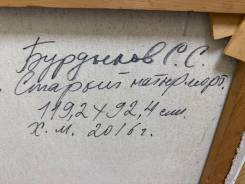 Бурдыков С.С.
Старый натюрморт.
119,2 х 92,4 см.
х.м. 2016 г.